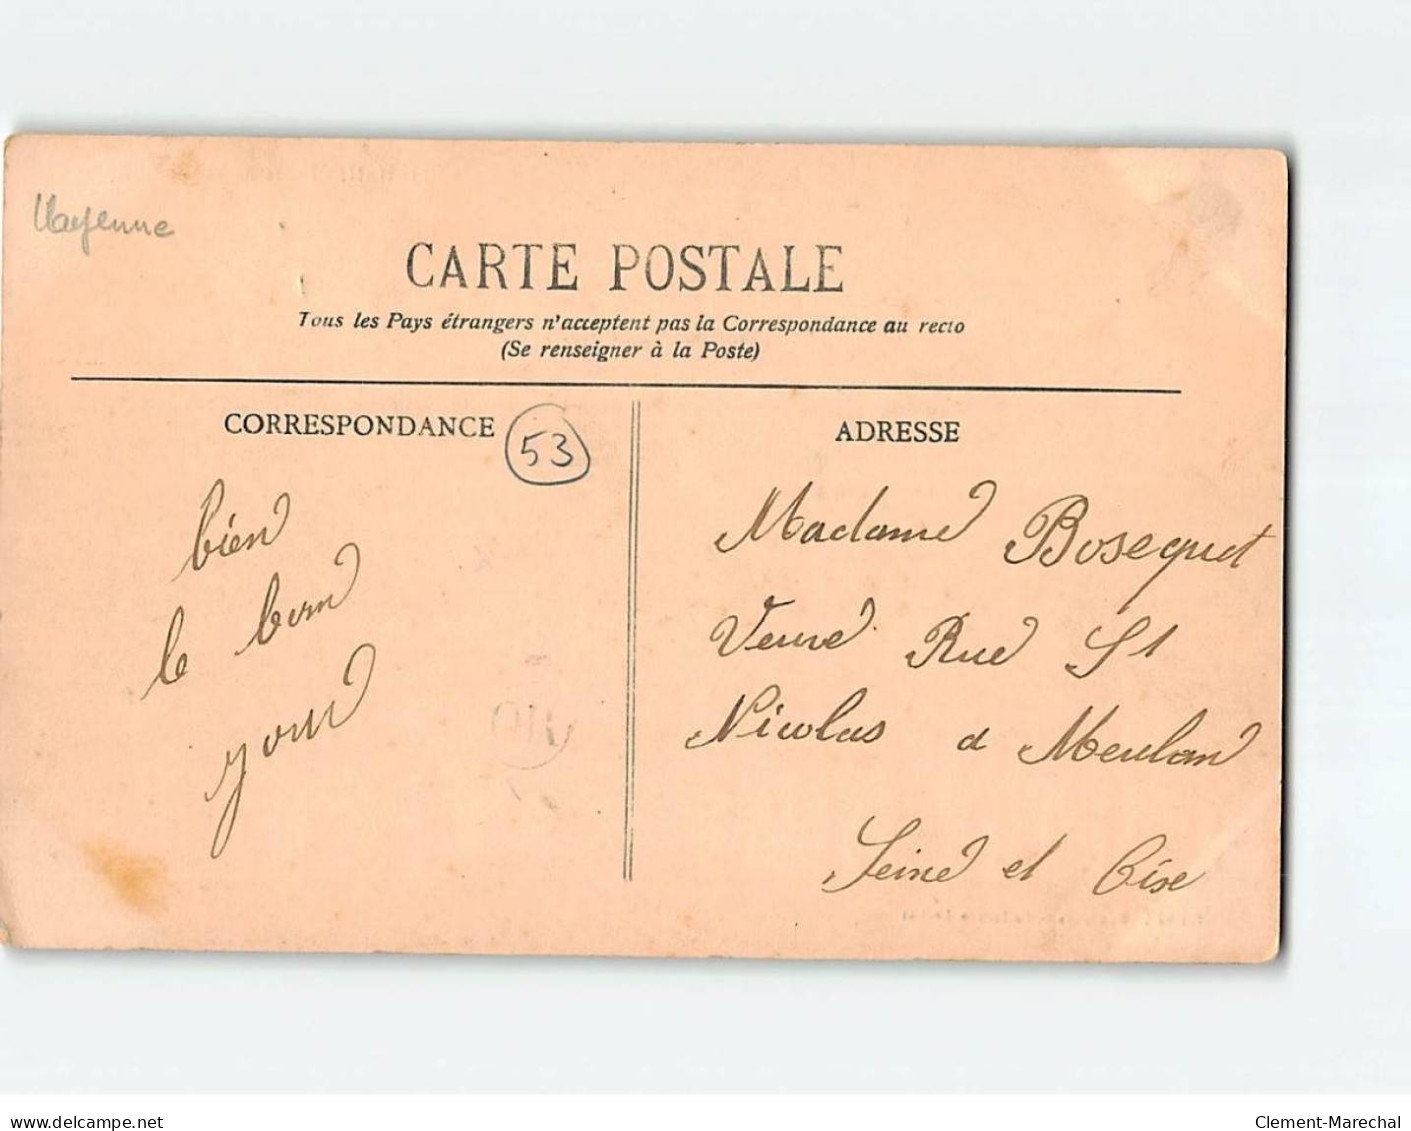 Mayenne
CARTE POSTALE
Tous les Pays étrangers n'acceptent pas la Correspondance au recto
(Se renseigner à la Poste)
CORRESPONDANCE
53
ADRESSE
bien
le bon
jour
Madame Bosequet
Veuve Rue St
Nicolas a Meulan
Seine et Oise
www.delcampe.net
Clement-Marechal